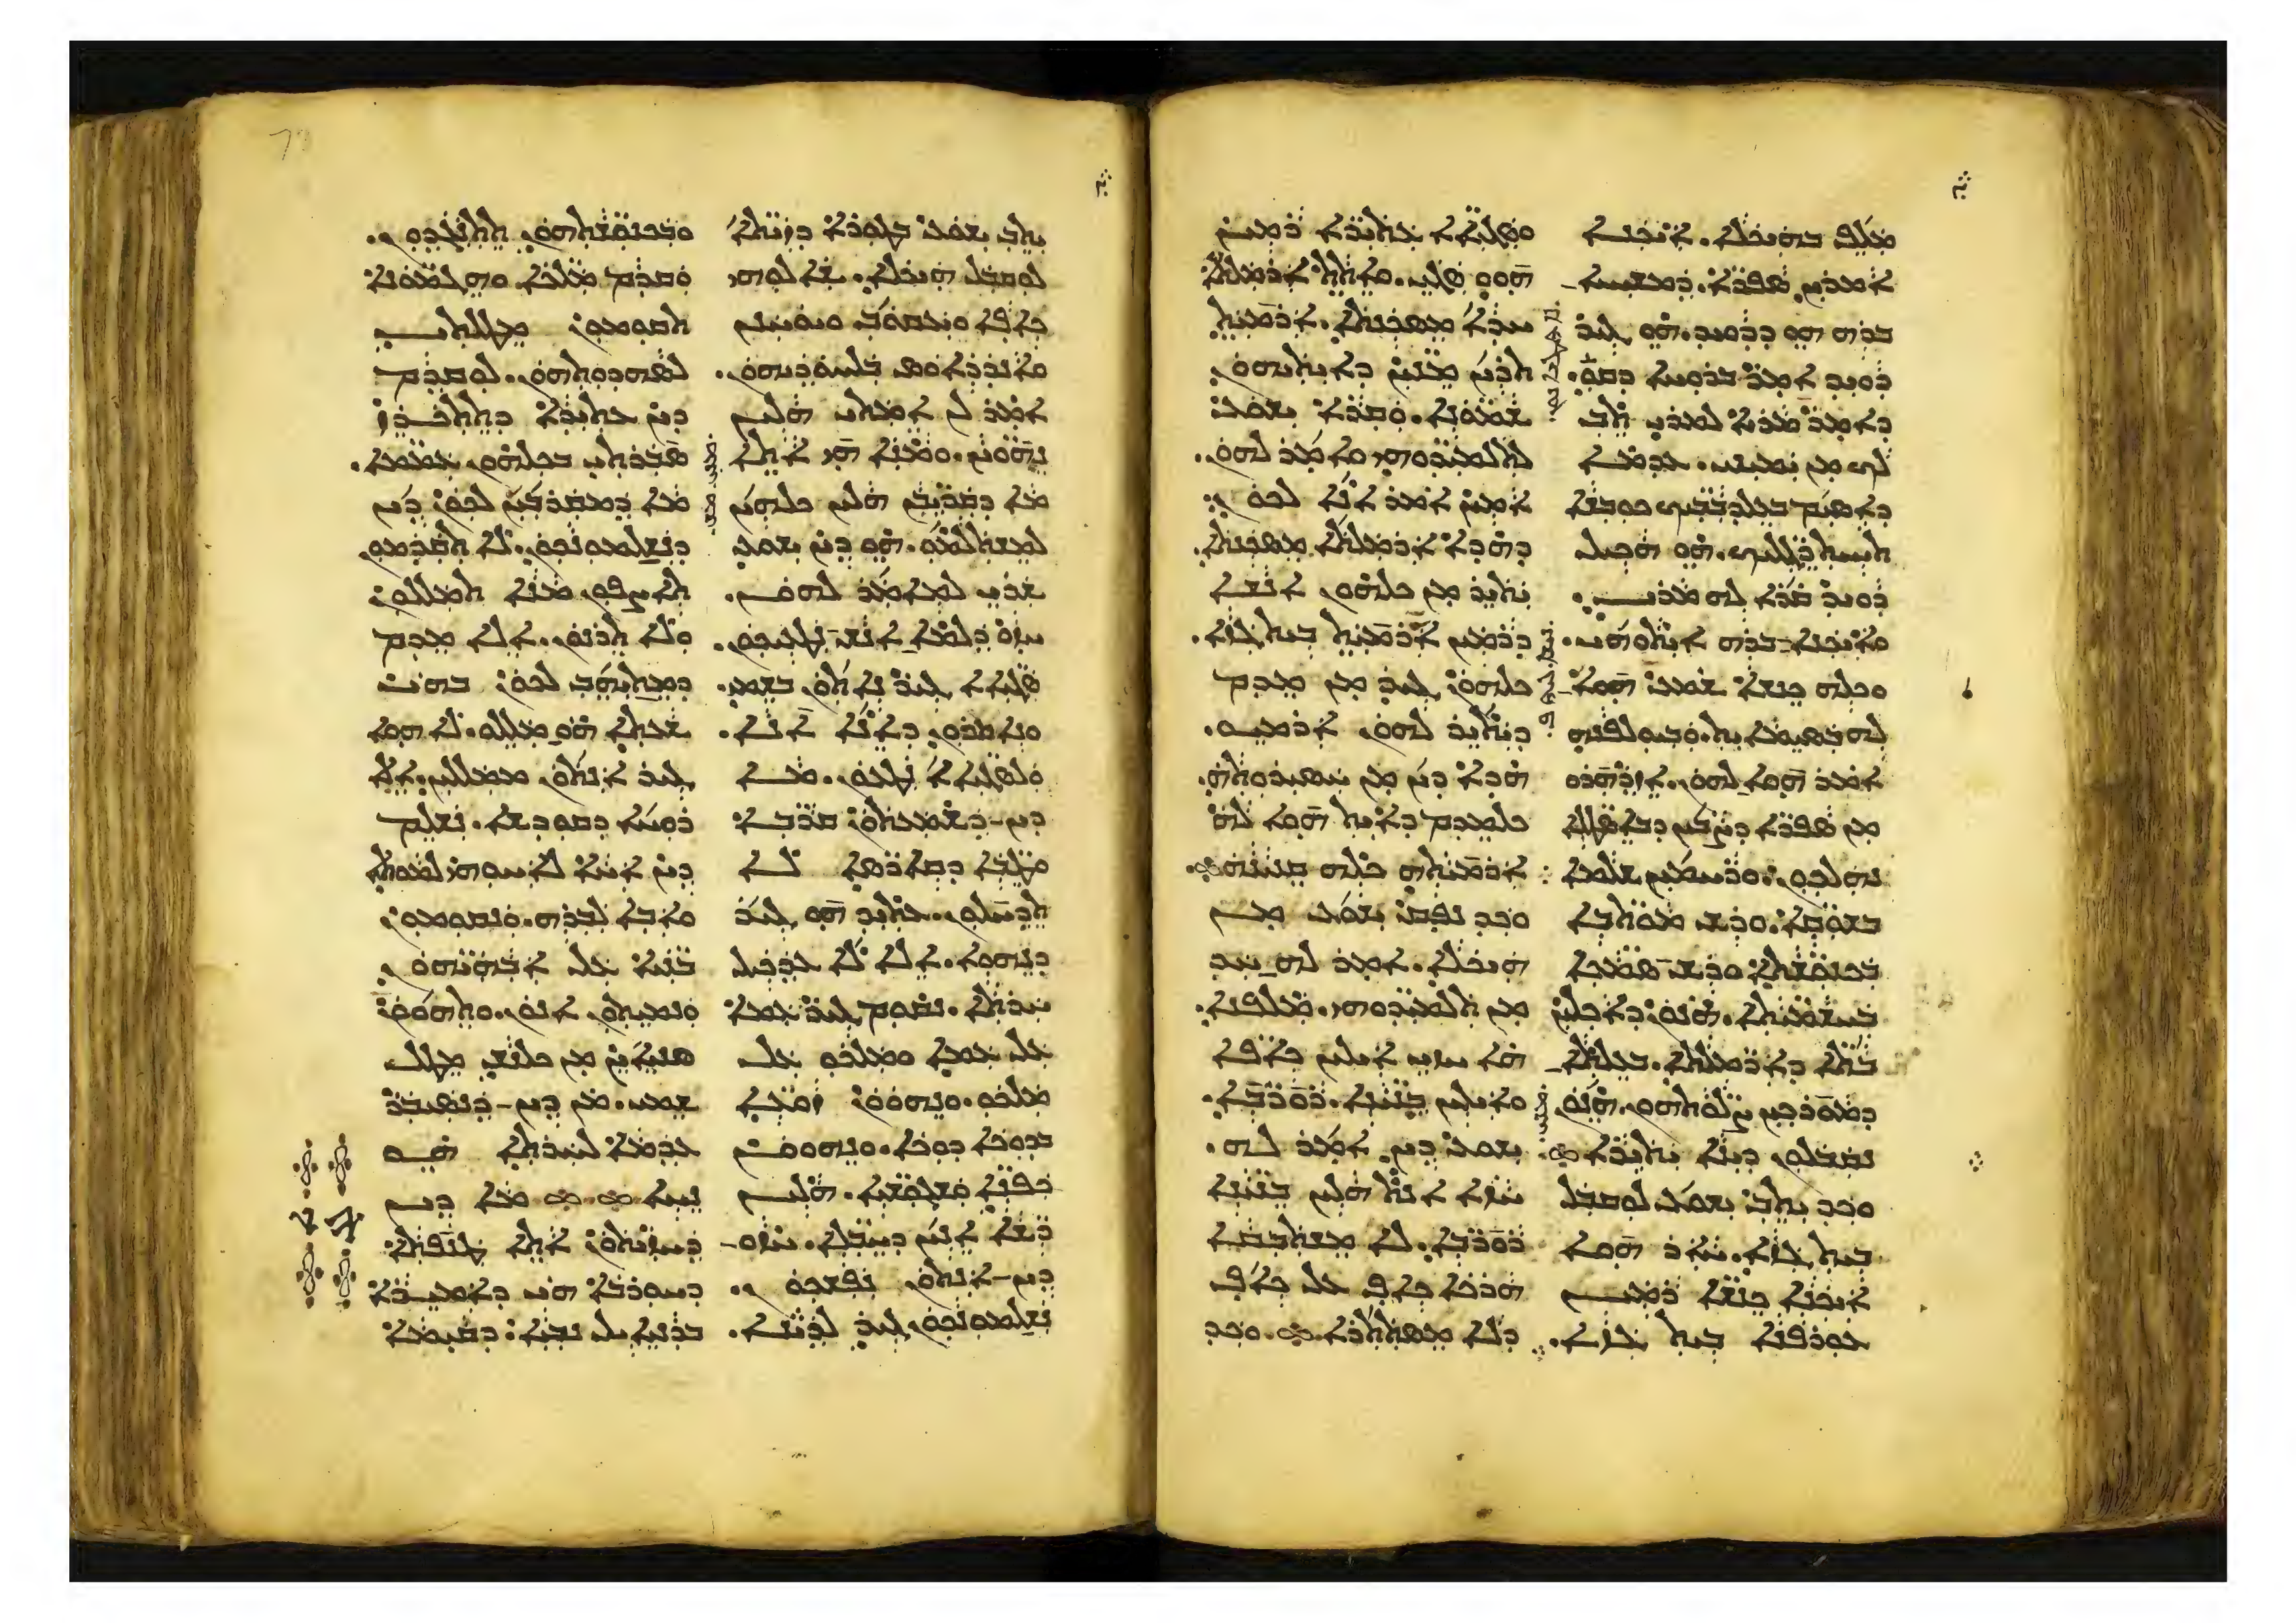 ܡܠܦ ܒܗܝܟܠܐ. ܐܝܟܢܐ
ܐܡܪܝܢ ܣܦܪܐ. ܕܡܫܝܚܐ
ܒܪܗ ܗܘ ܕܕܘܝܕ. ܗܘ ܓܝܪ
ܕܘܝܕ ܐܡܪ ܒܪܘܚܐ ܕܩܘ.
ܕܐܡܪ ܡܪܝܐ ܠܡܪܝ ܬܒ
ܠܟ ܡܢ ܝܡܝܢܝ. ܥܕܡܐ
ܕܐܣܝܡ ܒܥܠܕܒܒܝܟ ܟܘܒܫܐ
ܬܚܝܬ ܪܓܠܝܟ. ܗܘ ܗܟܝܠ
ܕܘܝܕ ܩܪܐ ܠܗ ܡܪܝ.
ܘܐܝܟܢܐ ܒܪܗ ܐܝܬܘܗܝ.
ܘܟܠܗ ܟܢܫܐ ܫܡܥ ܗܘܐ
ܠܗ ܒܣܝܡܐܝܬ. ܘܒܝܘܠܦܢܗ
ܐܡܪ ܗܘܐ ܠܗܘܢ. ܐܙܕܗܪܘ
ܡܢ ܣܦܪܐ ܕܨܒܝܢ ܕܒܐܣܛܠܐ
ܢܗܠܟܘܢ. ܘܪܚܡܝܢ ܫܠܡܐ
ܒܫܘܩܐ. ܘܪܝܫ ܡܘܬܒܐ
ܒܟܢܘܫܬܐ ܘܪܝܫ ܣܡܟܐ
ܒܚܫܡܝܬܐ. ܗܢܘܢ ܕܐܟܠܝܢ
ܒܬܐ ܕܐܪܡܠܬܐ. ܒܥܠܬܐ
ܕܡܘܪܟܝܢ ܨܠܘܬܗܘܢ. ܗܢܘܢ
ܢܩܒܠܘܢ ܕܝܢܐ ܝܬܝܪܐ
ܘܟܕ ܝܬܒ ܝܫܘܥ ܠܘܩܒܠ
ܒܝܬ ܓܙܐ. ܚܐܪ ܗܘܐ
ܐܝܟܢܐ ܟܢܫܐ ܪܡܝܢ
ܥܘܪܦܢܐ ܒܝܬ ܓܙܐ.
ܘܣܓܝܐܐ ܥܬܝܪܐ ܪܡܝܢ
ܗܘܘ ܣܓܝ. ܘܐܬܬ ܐܪܡܠܬܐ
ܚܕܐ ܡܣܟܢܬܐ. ܐܪܡܝܬ
ܬܪܝܢ ܡܢܝܢ ܕܐܝܬܝܗܘܢ
ܫܡܘܢܐ. ܘܩܪܐ ܝܫܘܥ
ܠܬܠܡܝܕܘܗܝ ܘܐܡܪ ܠܗܘܢ.
ܐܡܝܢ ܐܡܪ ܐܢܐ ܠܟܘܢ
ܕܗܕܐ ܐܪܡܠܬܐ ܡܣܟܢܬܐ.
ܝܬܝܪ ܡܢ ܟܠܗܘܢ ܐܢܫܐ
ܕܪܡܝܢ ܐܪܡܝܬ ܒܝܬ ܓܙܐ.
ܟܠܗܘܢ ܓܝܪ ܡܢ ܡܕܡ
ܕܝܬܝܪ ܠܗܘܢ ܐܪܡܝܘ.
ܗܕܐ ܕܝܢ ܡܢ ܚܣܝܪܘܬܗ
ܟܠܡܕܡ ܕܐܝܬ ܗܘܐ ܠܗ
ܐܪܡܝܬܗ ܟܠܗ ܩܢܝܢܗ
ܘܟܕ ܢܦܩ ܝܫܘܥ ܡܢ
ܗܝܟܠܐ. ܐܡܪ ܠܗ ܚܕ
ܡܢ ܬܠܡܝܕܘܗܝ. ܡܠܦܢܐ
ܗܐ ܚܙܝ ܐܝܠܝܢ ܟܐܦܐ
ܘܐܝܠܝܢ ܒܢܝܢܐ. ܪܘܪܒܐ.
ܝܫܘܥ ܕܝܢ ܐܡܪ ܠܗ.
ܚܙܐ ܐܢܬ ܗܠܝܢ ܒܢܝܢܐ
ܪܘܪܒܐ. ܠܐ ܡܫܬܒܩܐ
ܗܪܟܐ ܟܐܦ ܥܠ ܟܐܦ
ܕܠܐ ܡܣܬܬܪܐ. ܘܟܕ
ܝܬܒ ܝܫܘܥ ܒܛܘܪܐ ܕܙܝܬܐ
ܠܘܩܒܠ ܗܝܟܠܐ. ܫܐܠܘܗܝ
ܟܐܦܐ ܘܝܥܩܘܒ ܘܝܘܚܢܢ
ܘܐܢܕܪܐܘܣ ܒܠܚܘܕܝܗܘܢ.
ܐܡܪ ܠܢ ܐܡܬܝ ܗܠܝܢ
ܢܗܘܝܢ. ܘܡܢܐ ܗܝ ܐܬܐ
ܡܐ ܕܩܪܝܒܢ ܗܠܝܢ ܟܠܗܝܢ
ܠܡܫܬܠܡܘ. ܗܘ ܕܝܢ ܝܫܘܥ
ܫܪܝ ܠܡܐܡܪ ܠܗܘܢ.
ܚܙܘ ܕܠܡܐ ܐܢܫ ܢܛܥܝܟܘܢ.
ܣܓܝܐܐ ܓܝܪ ܢܐܬܘܢ ܒܫܡܝ.
ܘܢܐܡܪܘܢ ܕܐܢܐ ܐܢܐ.
ܘܠܣܓܝܐܐ ܢܛܥܘܢ. ܡܐ
ܕܝܢ ܕܫܡܥܬܘܢ ܩܪܒܐ
ܘܛܒܐ ܕܩܐܪܣܐ ܠܐ
ܬܕܚܠܘܢ. ܥܬܝܕ ܗܘ ܓܝܪ
ܕܢܗܘܐ. ܐܠܐ ܠܐ ܥܕܟܝܠ
ܚܪܬܐ. ܢܩܘܡ ܓܝܪ ܥܡܐ
ܥܠ ܥܡܐ ܘܡܠܟܘ ܥܠ
ܡܠܟܘ. ܘܢܗܘܘܢ ܙܘܥܐ
ܒܕܘܟܐ ܕܘܟܐ. ܘܢܗܘܘܢ
ܟܦܢܐ ܘܫܓܘܫܝܐ. ܗܠܝܢ
ܪܫܐ ܐܢܝܢ ܕܚܒܠܐ. ܚܙܘ
ܕܝܢ ܐܢܬܘܢ ܢܦܫܟܘܢ.
ܢܫܠܡܘܢܟܘܢ ܓܝܪ ܠܕܝܢܐ.
ܘܒܟܢܘܫܬܗܘܢ ܬܬܢܓܕܘܢ.
ܘܩܕܡ ܡܠܟܐ ܘܗܓܡܘܢܐ
ܬܩܘܡܘܢ ܡܛܠܬܝ
ܠܣܗܕܘܬܗܘܢ. ܠܘܩܕܡ
ܕܝܢ ܥܬܝܕܐ ܕܬܬܟܪܙ
ܣܒܪܬܝ ܒܟܠܗܘܢ ܥܡܡܐ.
ܡܐ ܕܡܩܪܒܝܢ ܠܟܘܢ ܕܝܢ
ܕܢܫܠܡܘܢܟܘܢ. ܠܐ ܬܩܕܡܘܢ
ܬܐܨܦܘܢ ܡܢܐ ܬܡܠܠܘܢ
ܘܠܐ ܬܪܢܘܢ. ܐܠܐ ܡܕܡ
ܕܡܬܝܗܒ ܠܟܘܢ ܒܗܝ
ܫܥܬܐ ܗܘ ܡܠܠܘ. ܠܐ ܗܘܐ
ܓܝܪ ܐܢܬܘܢ ܡܡܠܠܝܢ. ܐܠܐ
ܪܘܚܐ ܕܩܘܕܫܐ. ܢܫܠܡ
ܕܝܢ ܐܚܐ ܠܐܚܘܗܝ ܠܡܘܬܐ
ܘܐܒܐ ܠܒܪܗ. ܘܢܩܘܡܘܢ
ܒܢܝܐ ܥܠ ܐܒܗܝܗܘܢ
ܘܢܡܝܬܘܢ ܐܢܘܢ. ܘܬܗܘܘܢ
ܣܢܝܐܝܢ ܡܢ ܟܠܢܫ ܡܛܠ
ܫܡܝ. ܡܢ ܕܝܢ ܕܢܣܝܒܪ
ܥܕܡܐ ܠܚܪܬܐ ܗܘ
ܢܚܐ ܡܐ ܕܝܢ
ܕܚܙܝܬܘܢ ܐܬܐ ܛܢܦܬܐ
ܕܚܘܪܒܐ ܗܝ ܕܐܡܝܪܐ
ܒܕܢܝܐܝܠ ܢܒܝܐ. ܕܩܝܡܐ